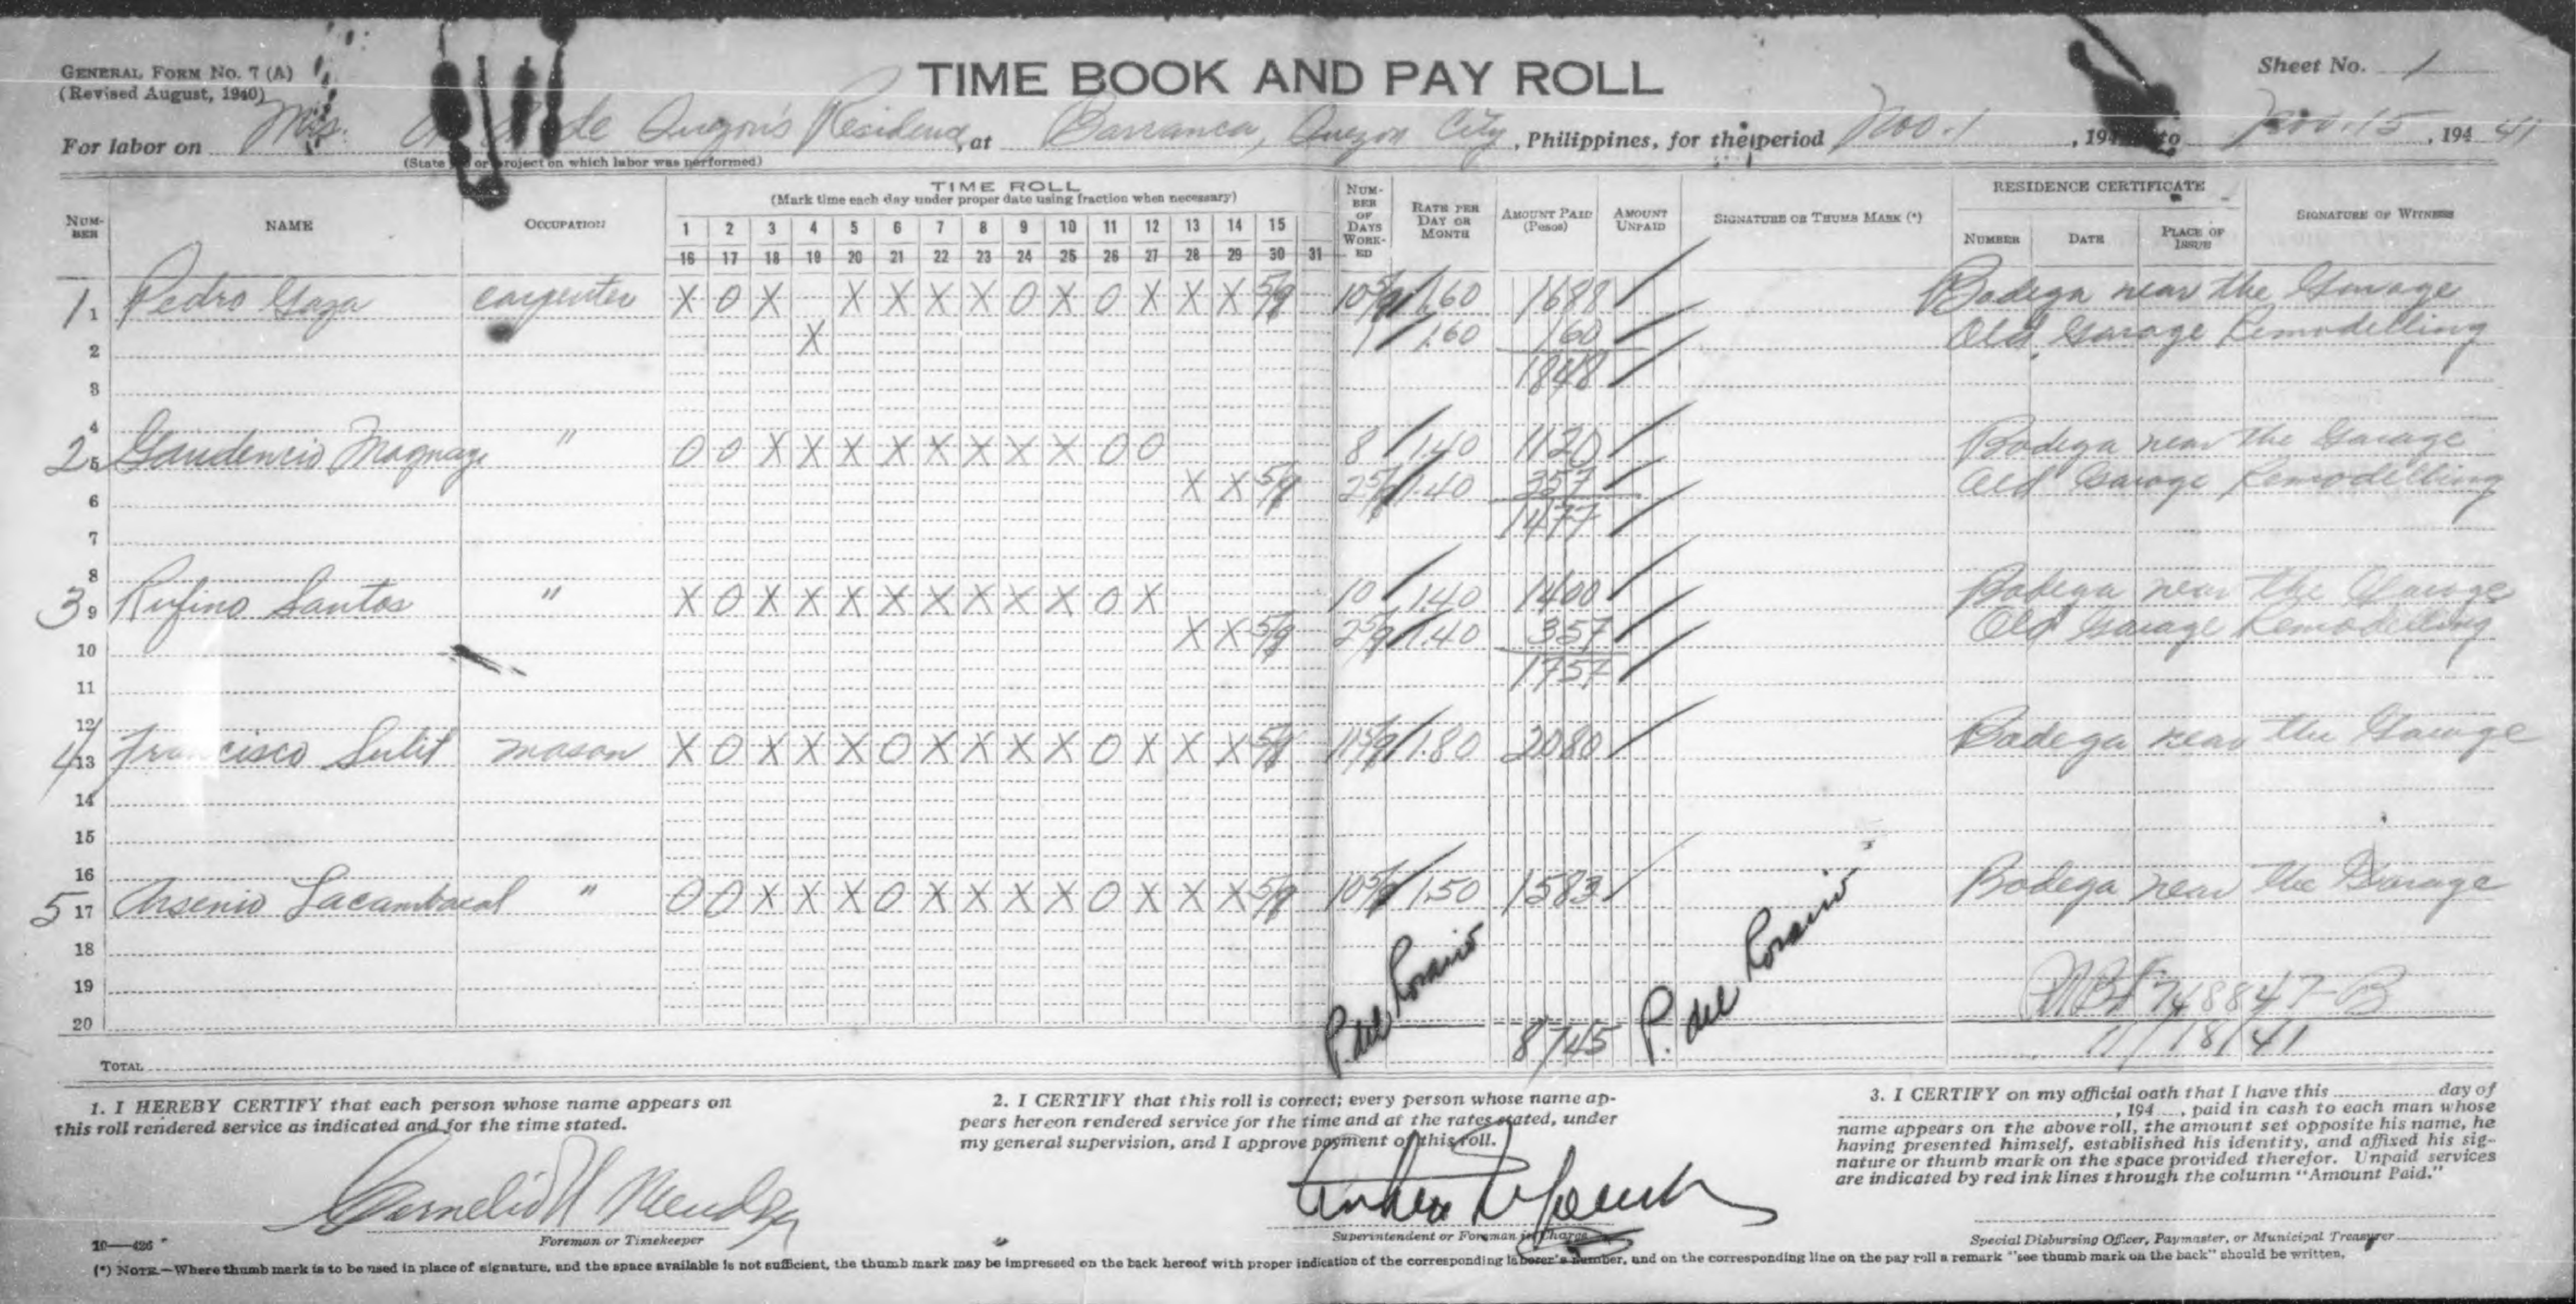 GENERAL FORM NO. 7 (A)
(Revised August, 1940)
TIME BOOK AND PAY ROLL
Sheet No. 1
For labor on Mrs. de Quezon's Residence, at Barranca, Quezon City, Philippines, for the period Nov. 1, 194 to Nov. 15, 194 41
(State or project on which labor was performed)
NUMBER NAME OCCUPATION TIME ROLL
(Mark time each day under proper date using fraction when necessary)
NUMBER OF DAYS WORKED RATE PER DAY OR MONTH AMOUNT PAID (Pesos) AMOUNT UNPAID SIGNATURE OR THUMB MARK (*) RESIDENCE CERTIFICATE SIGNATURE OF WITNESS
NUMBER DATE PLACE OF ISSUE
1 2 3 4 5 6 7 8 9 10 11 12 13 14 15
16 17 18 19 20 21 22 23 24 25 26 27 28 29 30 31
1 1 Pedro Gaza carpenter X O X X X X X O X O X X X 5/9 10 5/9 1.60 1688 Bodega near the Garage
2 X 1 1.60 160 Old Garage Remodelling
3 1848
4
2 5 Gaudencio Magnaye " O O X X X X X X X X O O 8 1.40 1120 Bodega near the Garage
6 X X 5/9 2 5/9 1.40 357 Old Garage Remodelling
7 1477
8
3 9 Rufino Santos " X O X X X X X X X X O X 10 1.40 1400 Bodega near the Garage
10 X X 5/9 2 5/9 1.40 357 Old Garage Remodelling
11 1757
12
4 13 Francisco Sulit mason X O X X X O X X X X O X X X 5/9 11 5/9 1.80 2080 Bodega near the Garage
14
15
16
5 17 Arsenio Lacambacal " O O X X X O X X X X O X X X 5/9 10 5/9 1.50 1583 Bodega near the Garage
18
19 748847-B
20
P. del Rosario 8745 P. del Rosario 11/18/41
TOTAL
1. I HEREBY CERTIFY that each person whose name appears on
this roll rendered service as indicated and for the time stated.
Cornelio Mendoza
Foreman or Timekeeper
2. I CERTIFY that this roll is correct; every person whose name ap-
pears hereon rendered service for the time and at the rates stated, under
my general supervision, and I approve payment of this roll.
Superintendent or Foreman in Charge
3. I CERTIFY on my official oath that I have this day of
, 194 , paid in cash to each man whose
name appears on the above roll, the amount set opposite his name, he
having presented himself, established his identity, and affixed his sig-
nature or thumb mark on the space provided therefor. Unpaid services
are indicated by red ink lines through the column "Amount Paid."
Special Disbursing Officer, Paymaster, or Municipal Treasurer
10—426
(*) NOTE.—Where thumb mark is to be used in place of signature, and the space available is not sufficient, the thumb mark may be impressed on the back hereof with proper indication of the corresponding laborer's number, and on the corresponding line on the pay roll a remark "see thumb mark on the back" should be written.